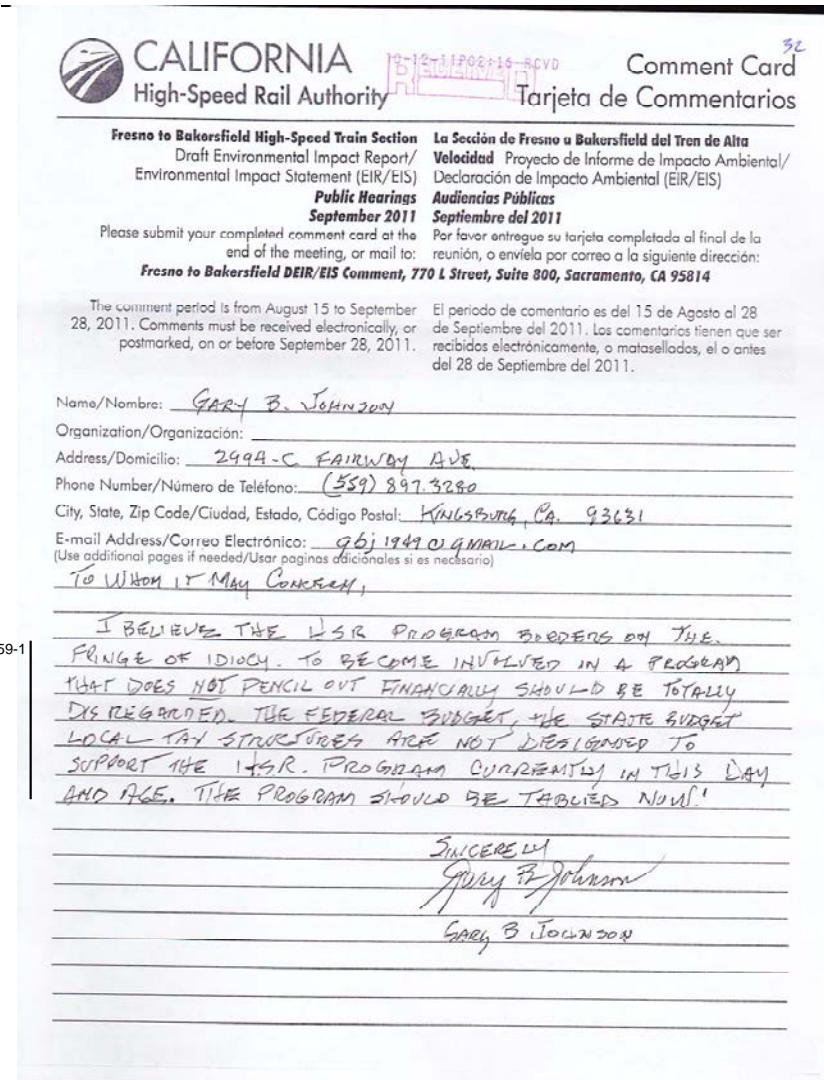 32
CALIFORNIA
High-Speed Rail Authority
10-12-11P02:16 RCVD
RECEIVED
Comment Card
Tarjeta de Commentarios
Fresno to Bakersfield High-Speed Train Section
Draft Environmental Impact Report/
Environmental Impact Statement (EIR/EIS)
Public Hearings
September 2011
Please submit your completed comment card at the
end of the meeting, or mail to:
La Sección de Fresno a Bakersfield del Tren de Alta
Velocidad Proyecto de Informe de Impacto Ambiental/
Declaración de Impacto Ambiental (EIR/EIS)
Audiencias Públicas
Septiembre del 2011
Por favor entregue su tarjeta completada al final de la
reunión, o envíela por correo a la siguiente dirección:
Fresno to Bakersfield DEIR/EIS Comment, 770 L Street, Suite 800, Sacramento, CA 95814
The comment period is from August 15 to September
28, 2011. Comments must be received electronically, or
postmarked, on or before September 28, 2011.
El periodo de comentario es del 15 de Agosto al 28
de Septiembre del 2011. Los comentarios tienen que ser
recibidos electrónicamente, o matasellados, el o antes
del 28 de Septiembre del 2011.
Name/Nombre: GARY B. JOHNSON
Organization/Organización:
Address/Domicilio: 2994-C FAIRWAY AVE.
Phone Number/Número de Teléfono: (559) 897.3280
City, State, Zip Code/Ciudad, Estado, Código Postal: KINGSBURG, CA. 93631
E-mail Address/Correo Electrónico: gbj1949@GMAIL.COM
(Use additional pages if needed/Usar paginas adicionales si es necesario)
TO WHOM IT MAY CONCERN,
I BELIEVE THE HSR PROGRAM BORDERS ON THE
59-1
FRINGE OF IDIOCY. TO BECOME INVOLVED IN A PROGRAM
THAT DOES NOT PENCIL OUT FINANCIALLY SHOULD BE TOTALLY
DISREGARDED. THE FEDERAL BUDGET, THE STATE BUDGET
LOCAL TAX STRUCTURES ARE NOT DESIGNED TO
SUPPORT THE HSR. PROGRAM CURRENTLY IN THIS DAY
AND AGE. THE PROGRAM SHOULD BE TABLED NOW!
SINCERELY
Gary B Johnson
GARY B JOHNSON